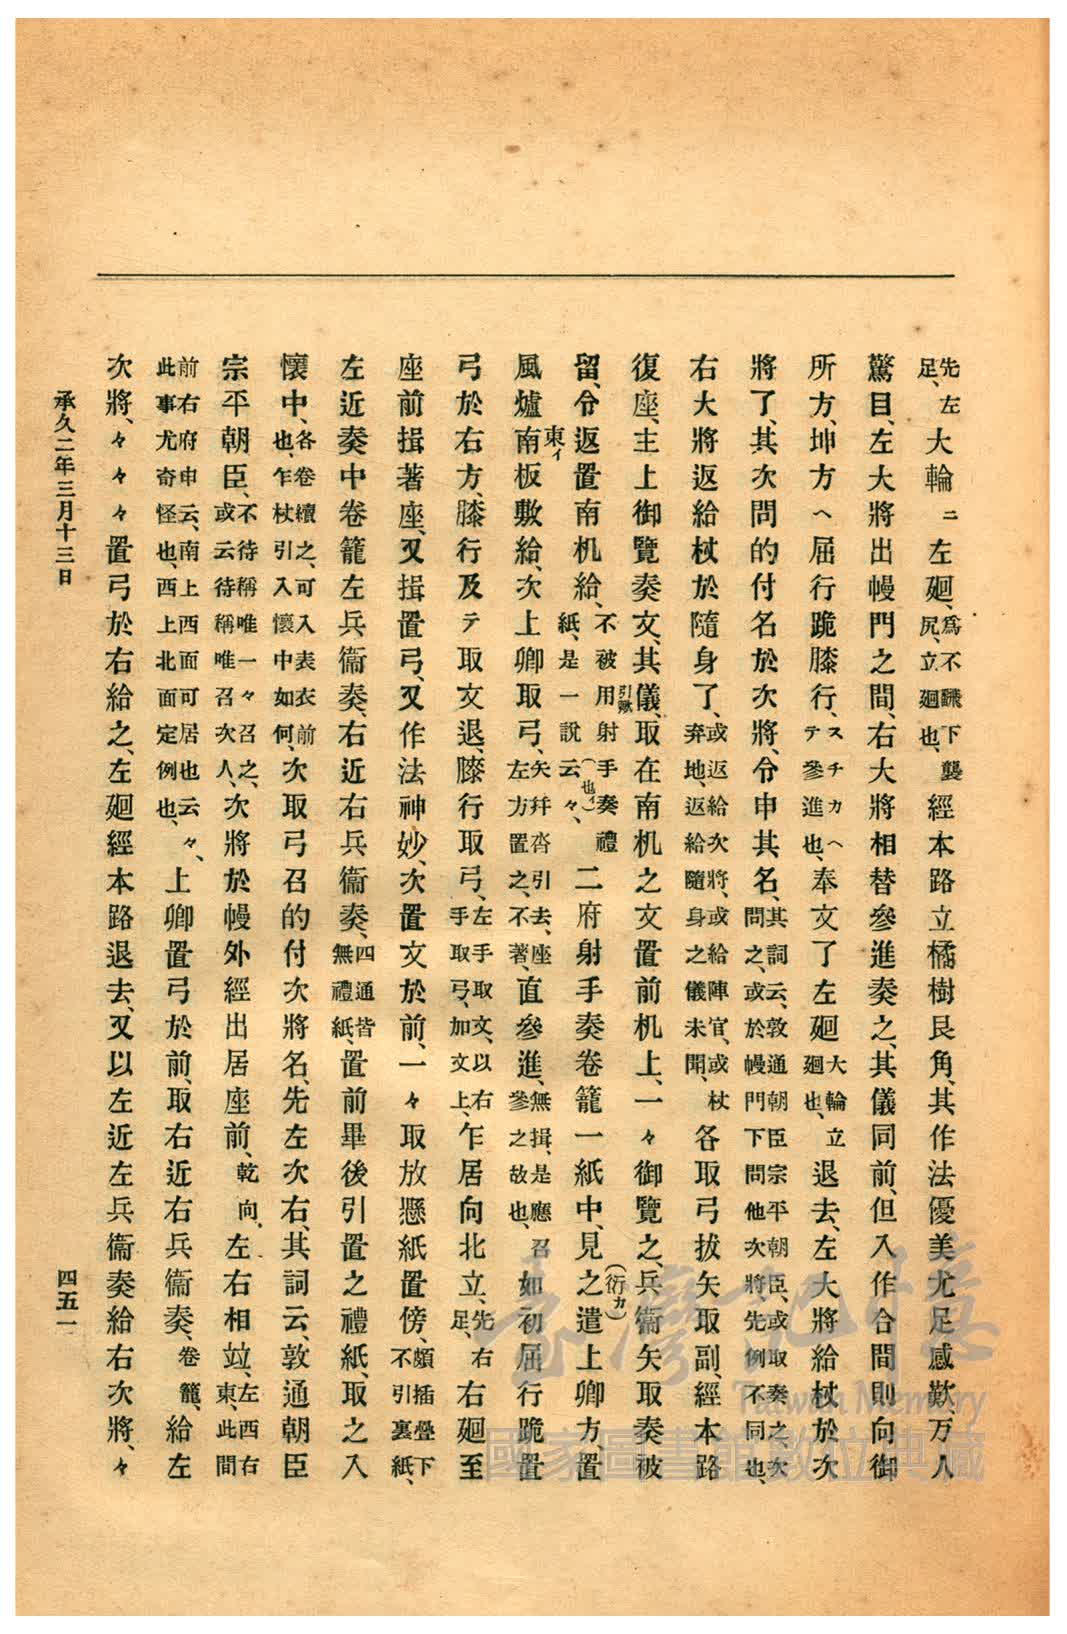 先左足、大輪ニ左廻、爲不蹴下襲尻、立廻也、經本路立橘樹艮角、其作法優美尤足感歎、万人
驚目、左大將出幔門之間、右大將相替參進奏之、其儀同前、但入作合間則向御
所方、坤方ヘ屈行跪膝行、スチカヘテ參進也、奉文了左廻大輪廻也、立退去、左大將給杖於次
將了、其次問的付名於次將、令申其名、其詞云、敦通朝臣宗平朝臣、或取奏之次問之、或於幔門下問他次將、先例不同也、
右大將返給杖於隨身了、或返給次將、或給陣官、或杖弃地、返給隨身之儀未聞、各取弓拔矢取副、經本路
復座、主上御覽奏文、其儀、引歟取在南机之文置前机上、一々御覽之、兵衞矢取奏被
留、令返置南机給、不被用射手奏禮紙、是一說云々、（也イ）二府射手奏卷籠一紙中、見之遣（衍カ）上卿方、置
風爐南東イ板敷給、次上卿取弓、矢幷沓引去、座左方置之、不著、直參進、無揖、是應召參之故也、如初屈行跪置
弓於右方、膝行及テ取文退、膝行取弓、左手取文、以右手取弓、加文上、乍居向北立、先右足、右廻至
座前揖著座、又揖置弓、又作法神妙、次置文於前、一々取放懸紙置傍、頗插疊下不引裏紙、
左近奏中卷籠左兵衞奏、右近右兵衞奏、四通皆無禮紙、置前畢後引置之禮紙、取之入
懷中、各卷續之、可入表衣前也、乍杖引入懷中如何、次取弓召的付次將名、先左次右、其詞云、敦通朝臣
宗平朝臣、不待稱唯一々召之、或云待稱唯召次人、次將於幔外經出居座前、乾向、左右相竝、左西右東、此間
前右府申云、南上西面可居也云々、此事尤奇怪也、西上北面定例也、上卿置弓於前、取右近右兵衞奏、卷籠、給左
次將、々々々置弓於右給之、左廻經本路退去、又以左近左兵衞奏給右次將、々
承久二年三月十三日
四五一
臺灣記憶
Taiwan Memory
國家圖書館數位典藏